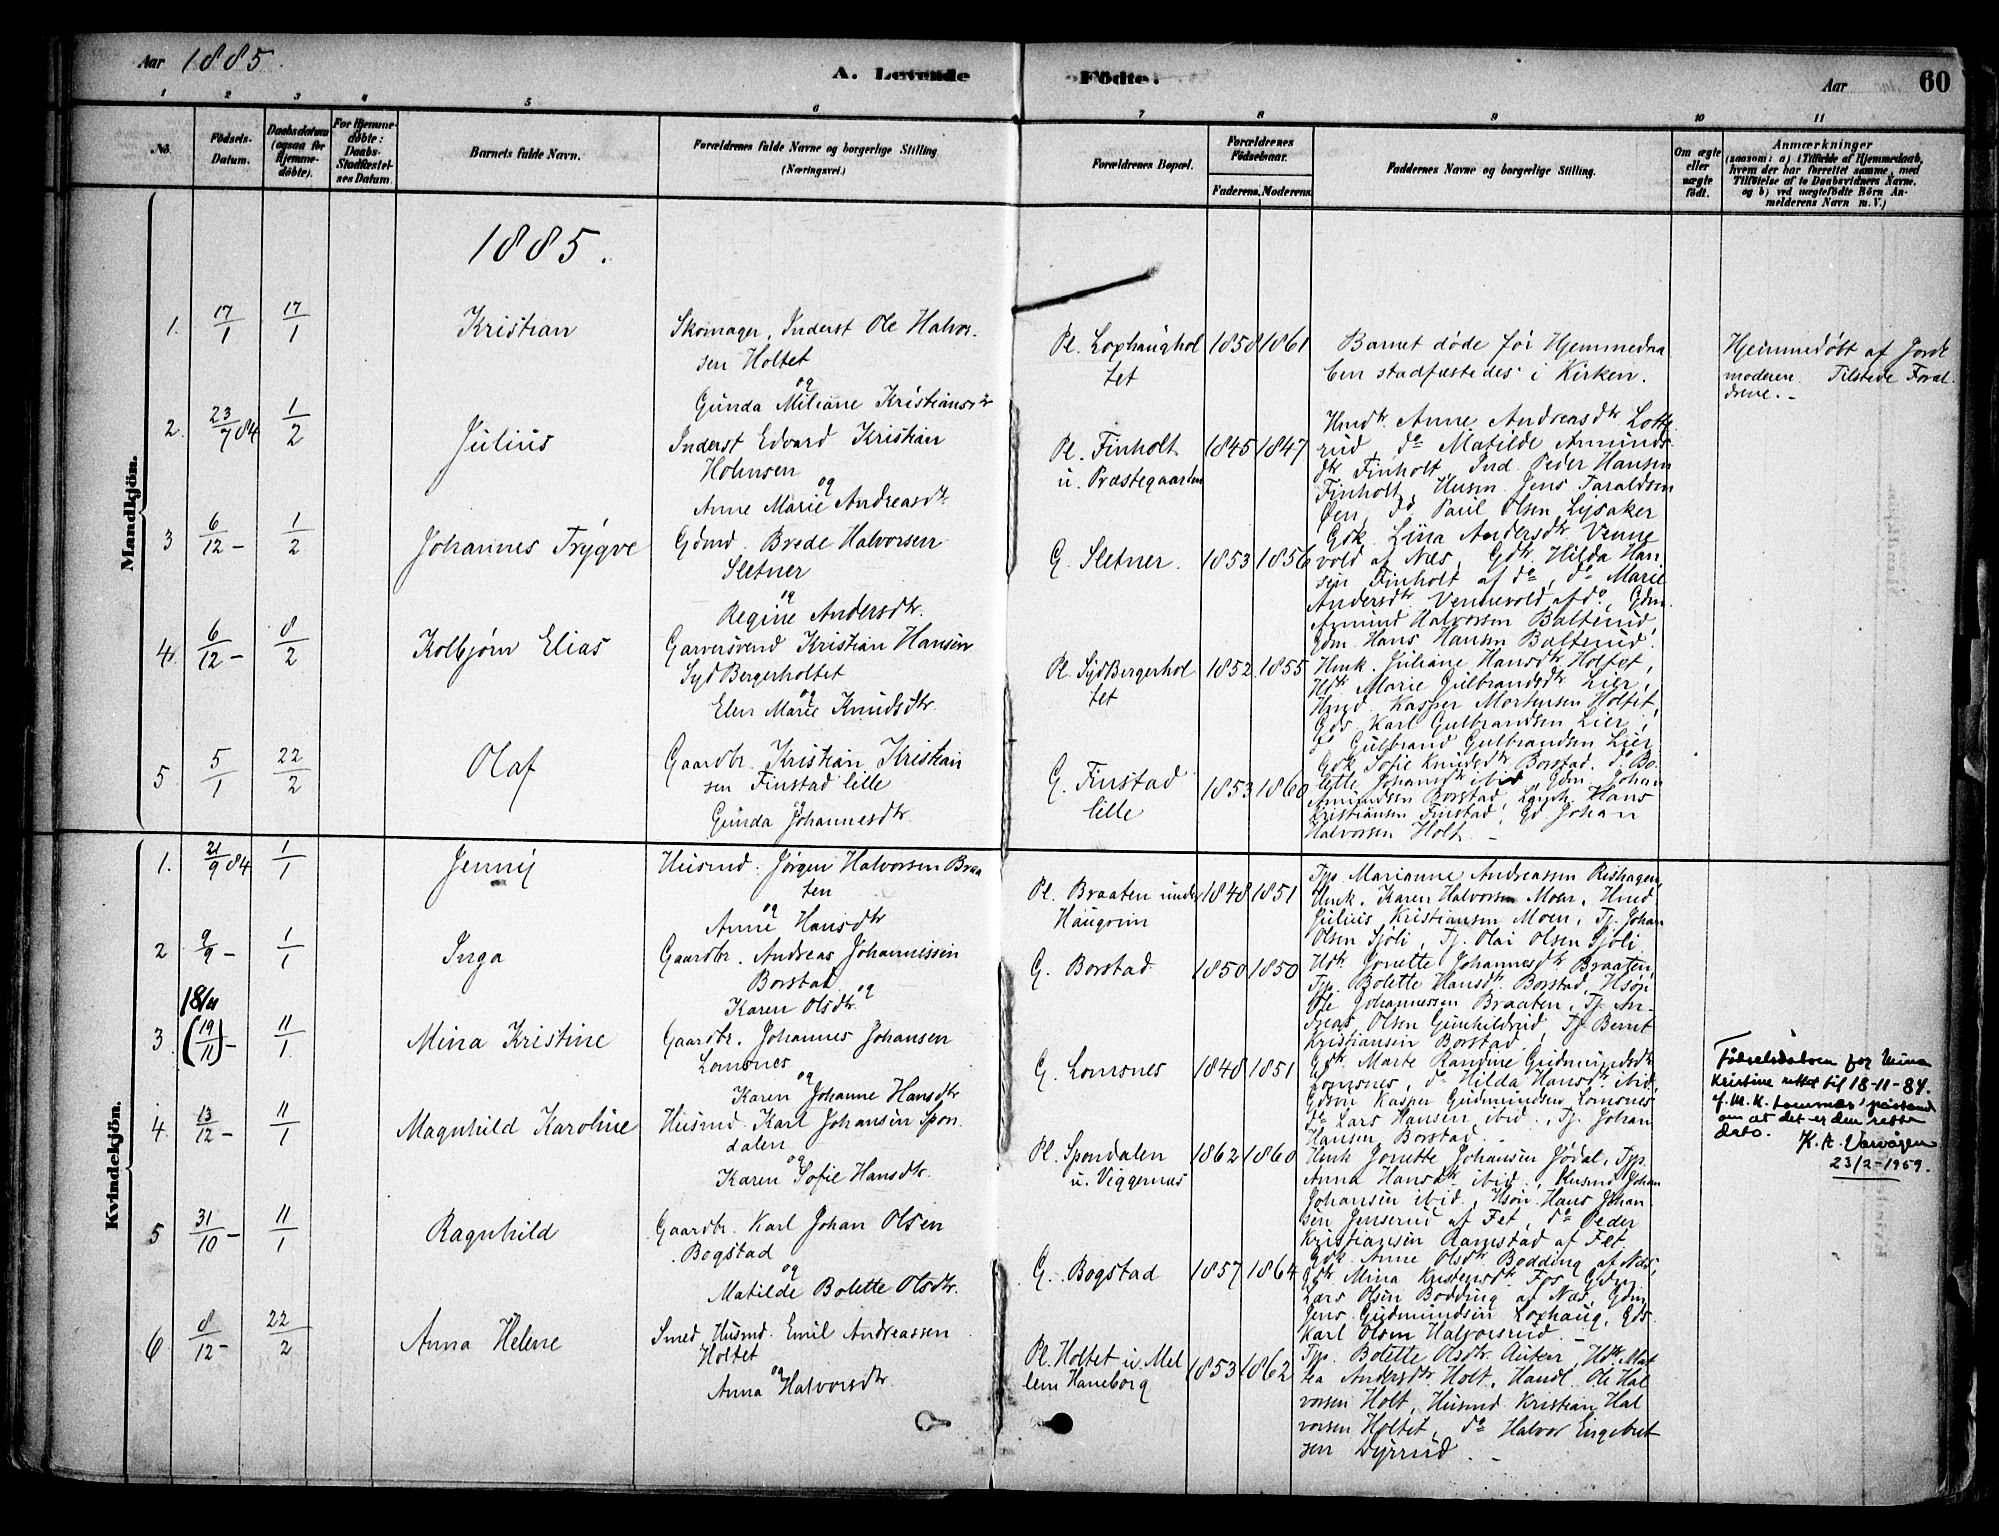 Aar 1885.
A. Levende Födte.
Aar 60
1 2 3 4 5 6 7 8 9 10 11
No.
Födsels-
Datum.
Daabsdatum
(ogsaa for
Hjemme-
döbte).
For Hjemme-
döbte:
Daabs-
Stadfæstel-
ses Datum.
Barnets fulde Navn.
Forældrenes fulde Navne og borgerlige Stilling
(Næringsvei.)
Forældrenes Bopæl.
Forældrenes
Födselsaar.
Faderens. Moderens.
Faddernes Navne og borgerlige Stilling.
Om ægte
eller
uægte
födt.
Anmærkninger
(saasom: a) i Tilfælde af Hjemmedaab,
hvem der har forrettet samme, med
Tilföielse af to Daabsvidners Navne,
og b) ved uægtefödte Börn An-
melderens Navn m. V.)
Mandkjön.
1885.
1. 17/1 17/1 Kristian
Skomager, Inderst Ole Halvor-
sen Holtet
og
Gunda Miliane Kristiansdr
Pl. Loxhaughol
tet
1858 1861
Barnet døde før Hjemmedaa
ben stadfæstedes i Kirken.
Hjemmedøbt af Jorde
moderen. Tilstede Foræl
drene.-
2. 23/7 84 1/2 Julius
Inderst Edvard Kristian
Holmsen
og
Anne Marie Andreasdtr
Pl. Finholt
u. Præstegaarden
1845 1847
Hmdtr Anne Andreasdtr Lotte
rud, do Matilde Amunds-
dtr Finholt, Ind. Peder Hansen
Finholt, Husm Jens Taraldsen
Øen, do Paul Olsen Lysaker
3 6/12 - 1/2 Johannes Trygve
Gdmd. Brede Halvorsen
Sletner
og
Regine Andersdtr.
G. Sletner.
1853 1856
Gdk. Lina Andersdtr Venne
vold af Næs, Gdtr Hilda Han-
sen Finholt af do, do Marie
Andersdtr Vennevold af do, Gdm.
Amund Halvorsen Balterud,
Gdm. Hans Hansen Balterud.
4. 6/12 - 8/2 Kolbjørn Elias
Garversvend Kristian Hansen
Syd Bergerholtet
og
Elen Marie Knudsdtr
Pl. Syd Bergerhol
tet
1852 1855
Hmk. Juliane Hansdtr Holtet,
Hdtr Marie Gulbrandsdtr Lier,
Kasper Mortensen Holtet,
Gds Karl Gulbrandsen Lier,
do Gulbrand Gulbrandsen Lier
5 5/1 22/2 Olaf
Gaardbr. Kristian Kristian
sen Finstad lille
og
Gunda Johannesdtr.
G. Finstad
lille
1853 1860
Gdk Sofie Knudsdtr Borstad, do Bo-
lette Johansdtr ibid Gdm. Johan
Amundsen Borstad, Hans
Kristiansen Finstad, Gd Johan
Halvorsen Holt -
Kvindekjön.
1. 21/9 84 1/1 Jenny
Husmd. Jørgen Halvorsen Braa
ten
og
Anne Hansdtr
Pl. Braaten under
Haugrim
1848 1851
Tjp. Marianne Andreassen Rishagen,
Hmk. Karen Halvorsen Moen, Hmd
Julius Kristiansen Moen, Tj. Johan
Olsen Sjøli, Tj. Olai Olsen Sjøli
2 9/9 - 1/1 Inga
Gaardbr. Andreas Johannessen
Borstad
og
Karen Olsdtr.
G. Borstad
1850 1850
Hdtr. Jonette Johannesdtr Braaten,
Tjp. Bolette Hansdtr. Borstad, Hsøn
Ole Johannessen Braaten, Tj. An-
dreas Olsen Gunhildrud, Tj Bernt
Kristiansen Borstad.
18/11
3. (19/11) - 11/1 Mina Kristine
Gaardbr. Johannes Johansen
Lomsnes
og
Karen Johanne Hansdtr
G. Lomsnes
1848 1851
Gdtr. Marte Randine Gudmundsdtr
Lomsnes, do Hilda Hansdtr ibid,
Gdsøn Kasper Gudmundsen Lomsnes
do Lars Hansen, ibid., Tj. Johan
Hansen Borstad.
Fødselsdatoen for Mina
Kristine rettet til 18-11-84.
f. M. K. Lomsnæs' påstand
om at det er den rette
dato. K. A. Varvågen
23/2-1959.
4. 13/12 - 11/1 Magnhild Karoline
Husmd. Karl Johansen Spon-
dalen
og
Karen Sofie Hansdtr.
Pl. Spondalen
u. Viggernæs
1862 1860
Hmk Jonette Johansen Jødal, Tjp.
Anna Hansdtr ibid., Husmd Johan
Johansen ibid, Hsøn Hans Johan-
sen Jenserud af Fet, do Peder
Kristiansen Ramstad af Fet
5 31/10 - 11/1 Ragnhild
Gaardbr. Karl Johan Olsen
Bogstad
og
Matilde Bolette Olsdtr.
G. Bogstad
1857 1864
Gdk. Anne Olsdtr Bodding af Næs,
Gdtr Mina Kristensdtr. Fos, Gdm.
Lars Olsen Bodding af Næs, Gdm
Jens Gudmundsen Loxhaug, Gds.
Karl Olsen Halvorsrud. -
6. 8/12 - 22/2 Anna Helene
Smed, Husmd. Emil Andreassen
Holtet
og
Anna Halvorsdtr
Pl. Holtet u Mel
lem Haneborg
1853 1862
Tjp. Bolette Olsdtr. Auten, Hdtr. Mat
tea Andersdtr. Holt, Handl. Ole Hal
vorsen Holt, Husmd Kristian Hal
vorsen Holtet, do Halvor Engebret
sen Dyrrud. -